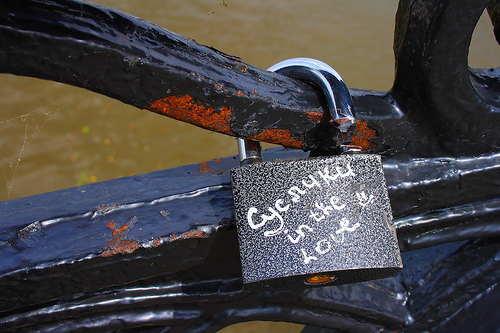 Суслики
in the
Love